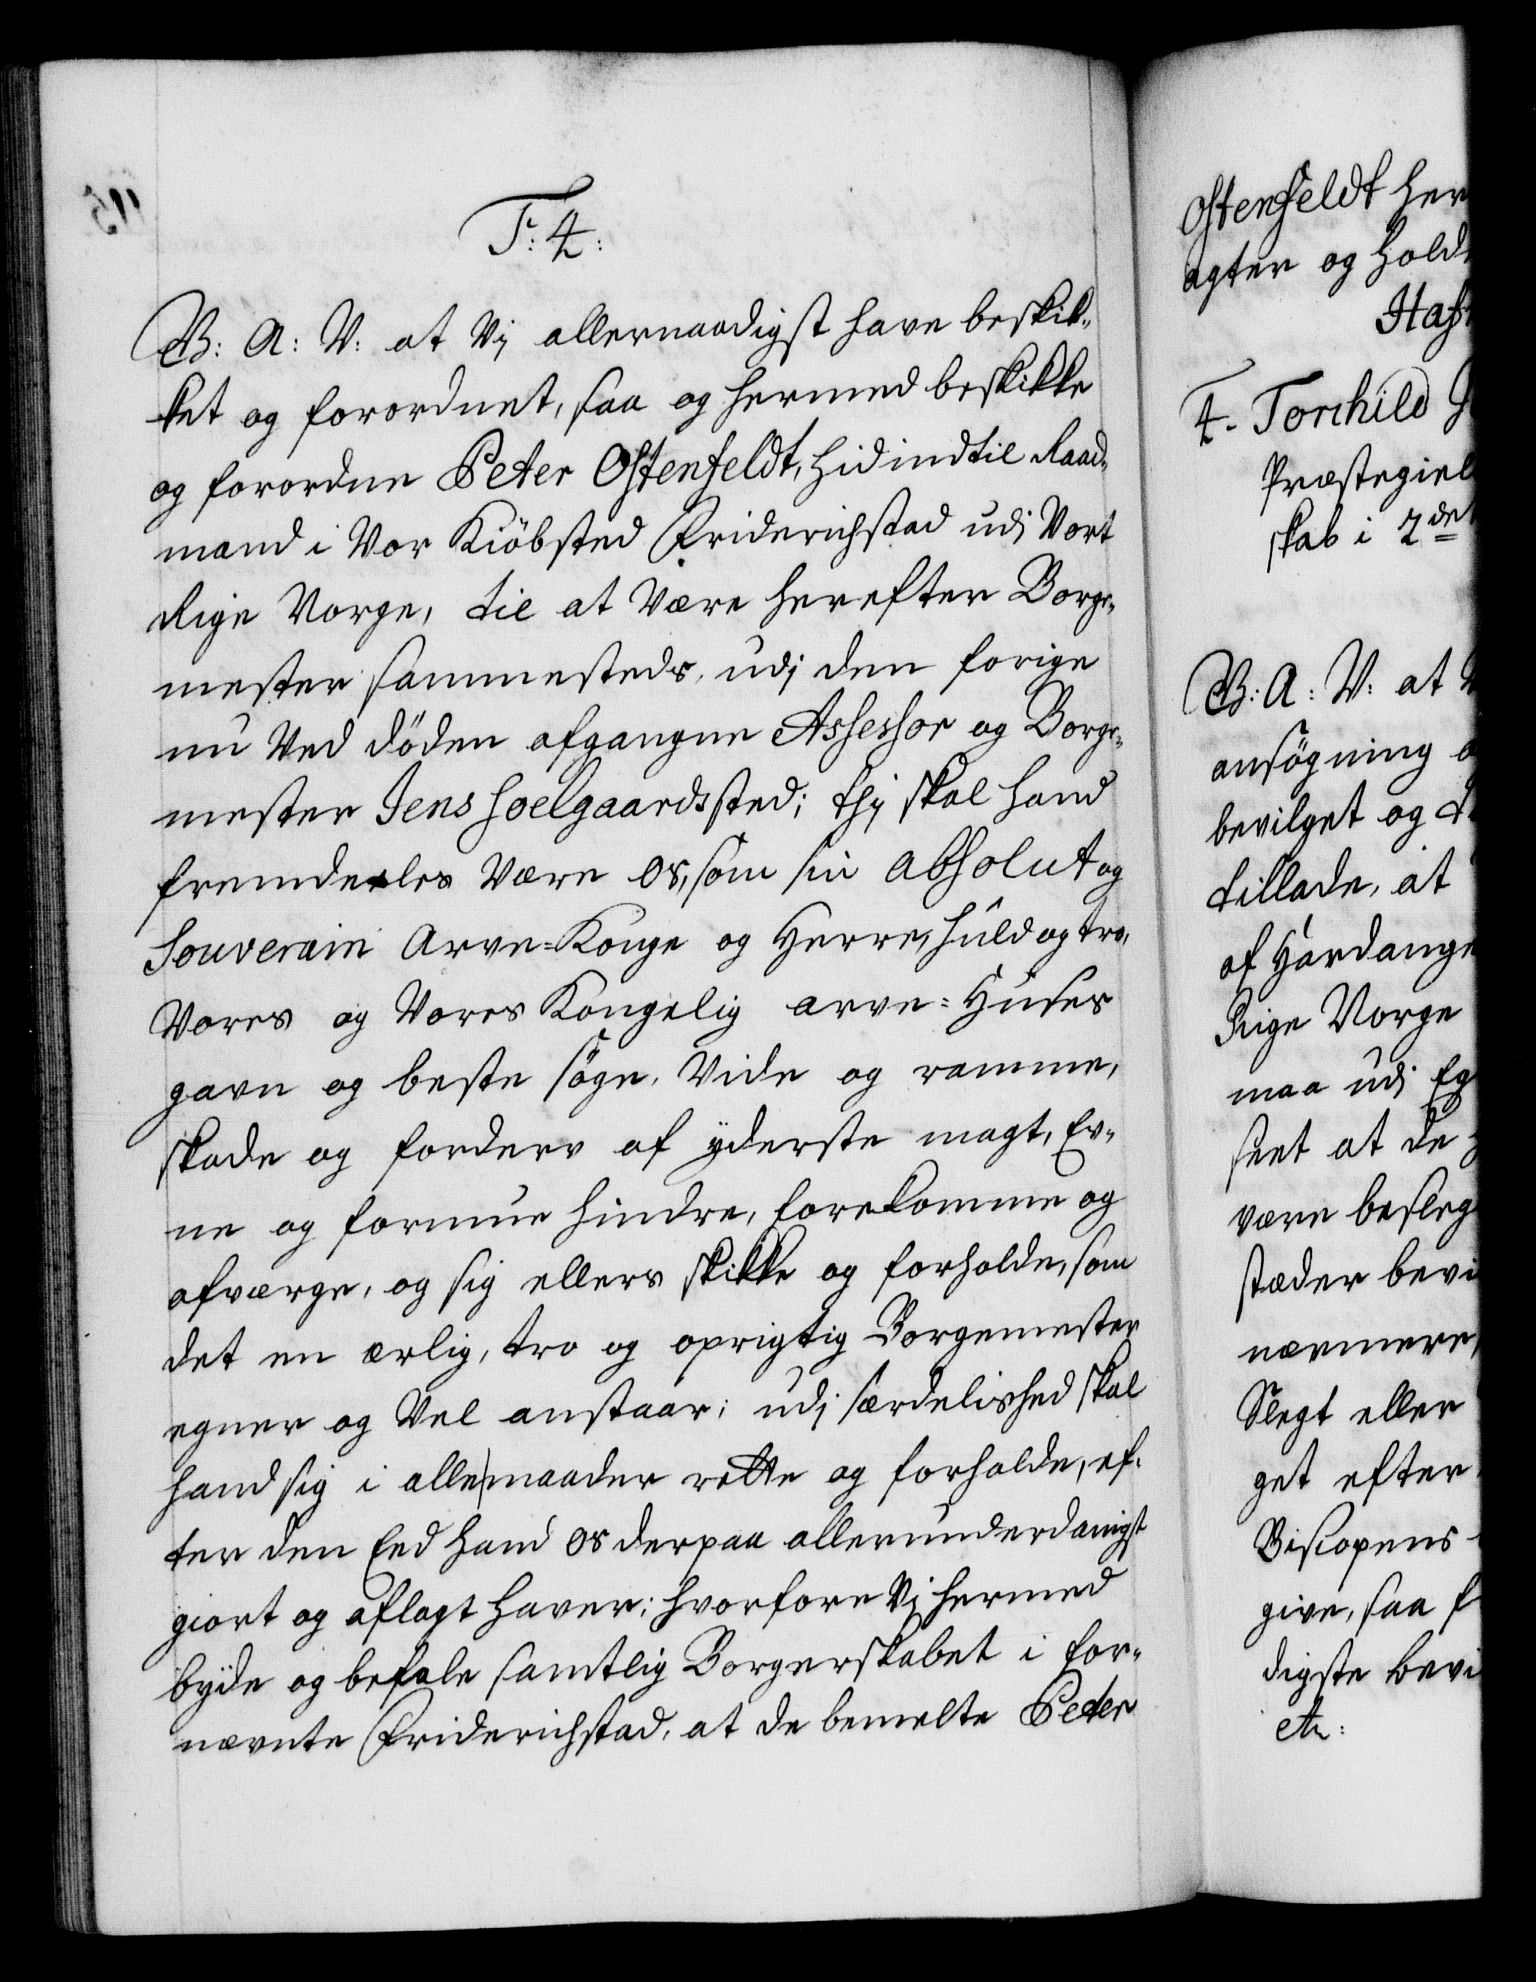 F: 4:
G: A: V: at Vj allernaadigst have beskik„
ket og forordnet, saa og hermed beskikke
og forordne Peter Ostenfeldt, hidindtil Raad„
mand i Vor Kiöbsted Friderichstad udj Vort
Rige Norge, til at Være herefter Borge„
mester sammesteds, udj den forige
nu Ved döden afgangne Assessor og Borge„
mester Jens Hoelgaardssted; thj skal hand
fremdeeles Være os, som sin absolut og
Souverain Arve-Konge og Herre, huld og tro,
Vores og Vores Kongelig arve-Huses
gavn og beste söge, Vide og ramme,
skade og forderv af yderste magt, Ev„
ne og formue hindre, forekomme og
afværge, og sig ellers skikke og forholde, som
det en ærlig, tro og oprigtig Borgemester
egner og Vel anstaar; udj særdelished skal
hand sig i alle maader rette og forholde, ef„
ter den Eed hand os derpaa allerunderdanigst
giort og aflagt haver; hvorfore Vj hermed
byde og befale samtlig Borgerskabet i for„
nævnte Friderichstad, at de bemelte Peter
Ostenfeldt her
agter og hold
Haf
4. Torchild
Præstegiel
skab i 2det
G: A: V: at V
ansögning
bevilget og
tillade, at
af Hardange
Rige Norge
maa udj Eg
seet at de
være besleg
stæder bevi
nævnere,
Slegt eller
get efter
Biscopens
give, saa f
digste bevi
etc: